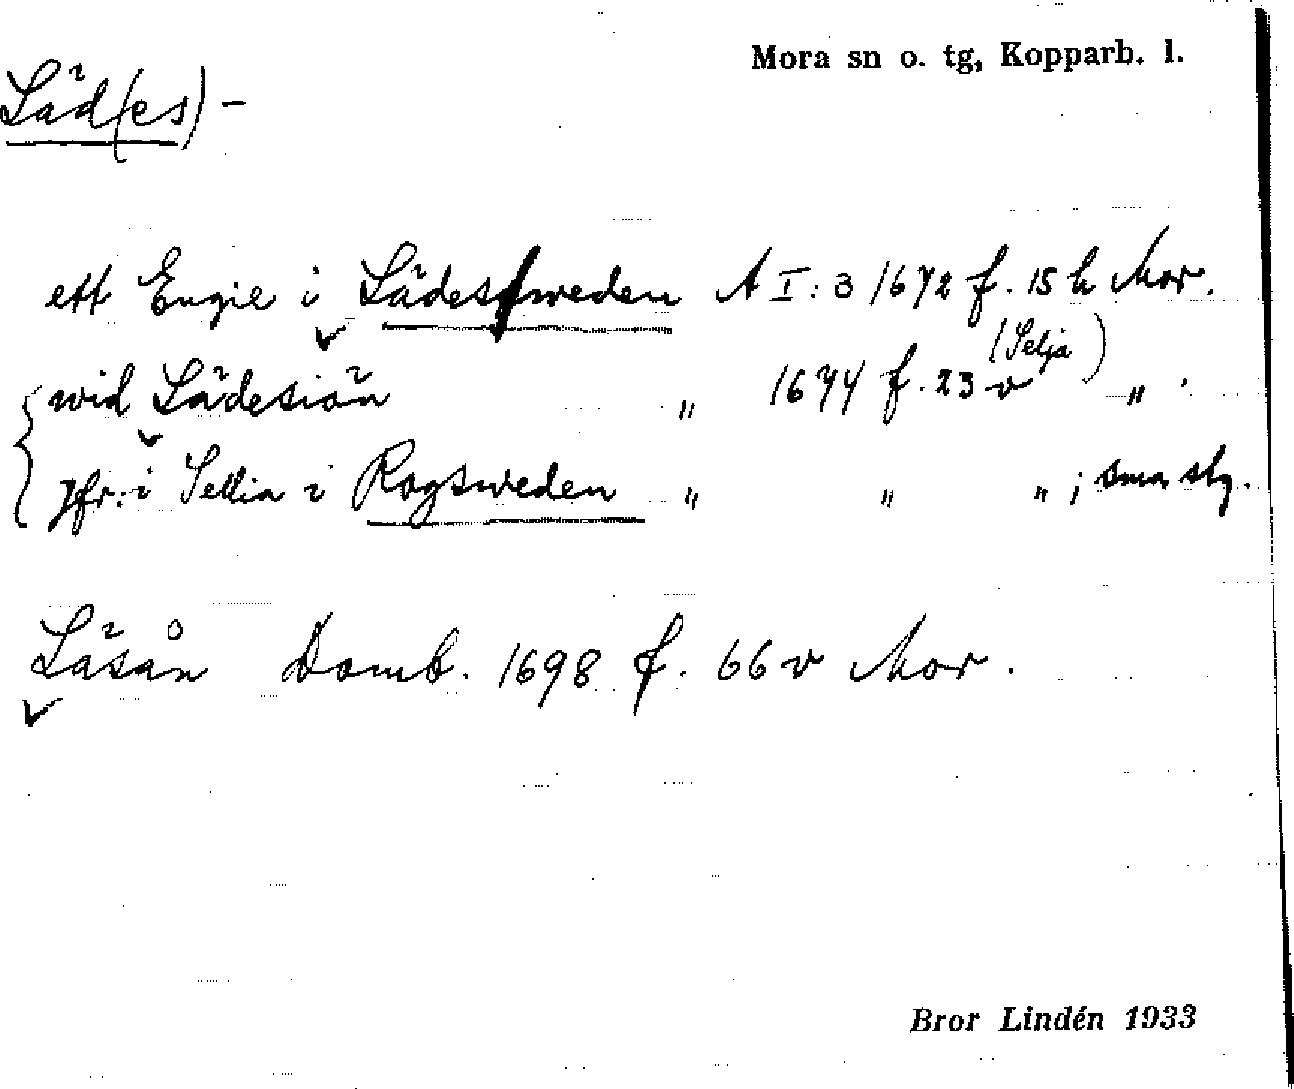 Mora sn o. tg, Kopparb. l.
Läd(es)-
ett Engie i Lädessweden A I:3 1672 f. 15 h Mor.
wid Lädesiön „ 1674 f. 23 v (Selja) „ .
jfr: i Sellia i Rogsweden „ „ „ ; smra stg.
Läsån Domb. 1698 f. 66 v Mor.
Bror Lindén 1933